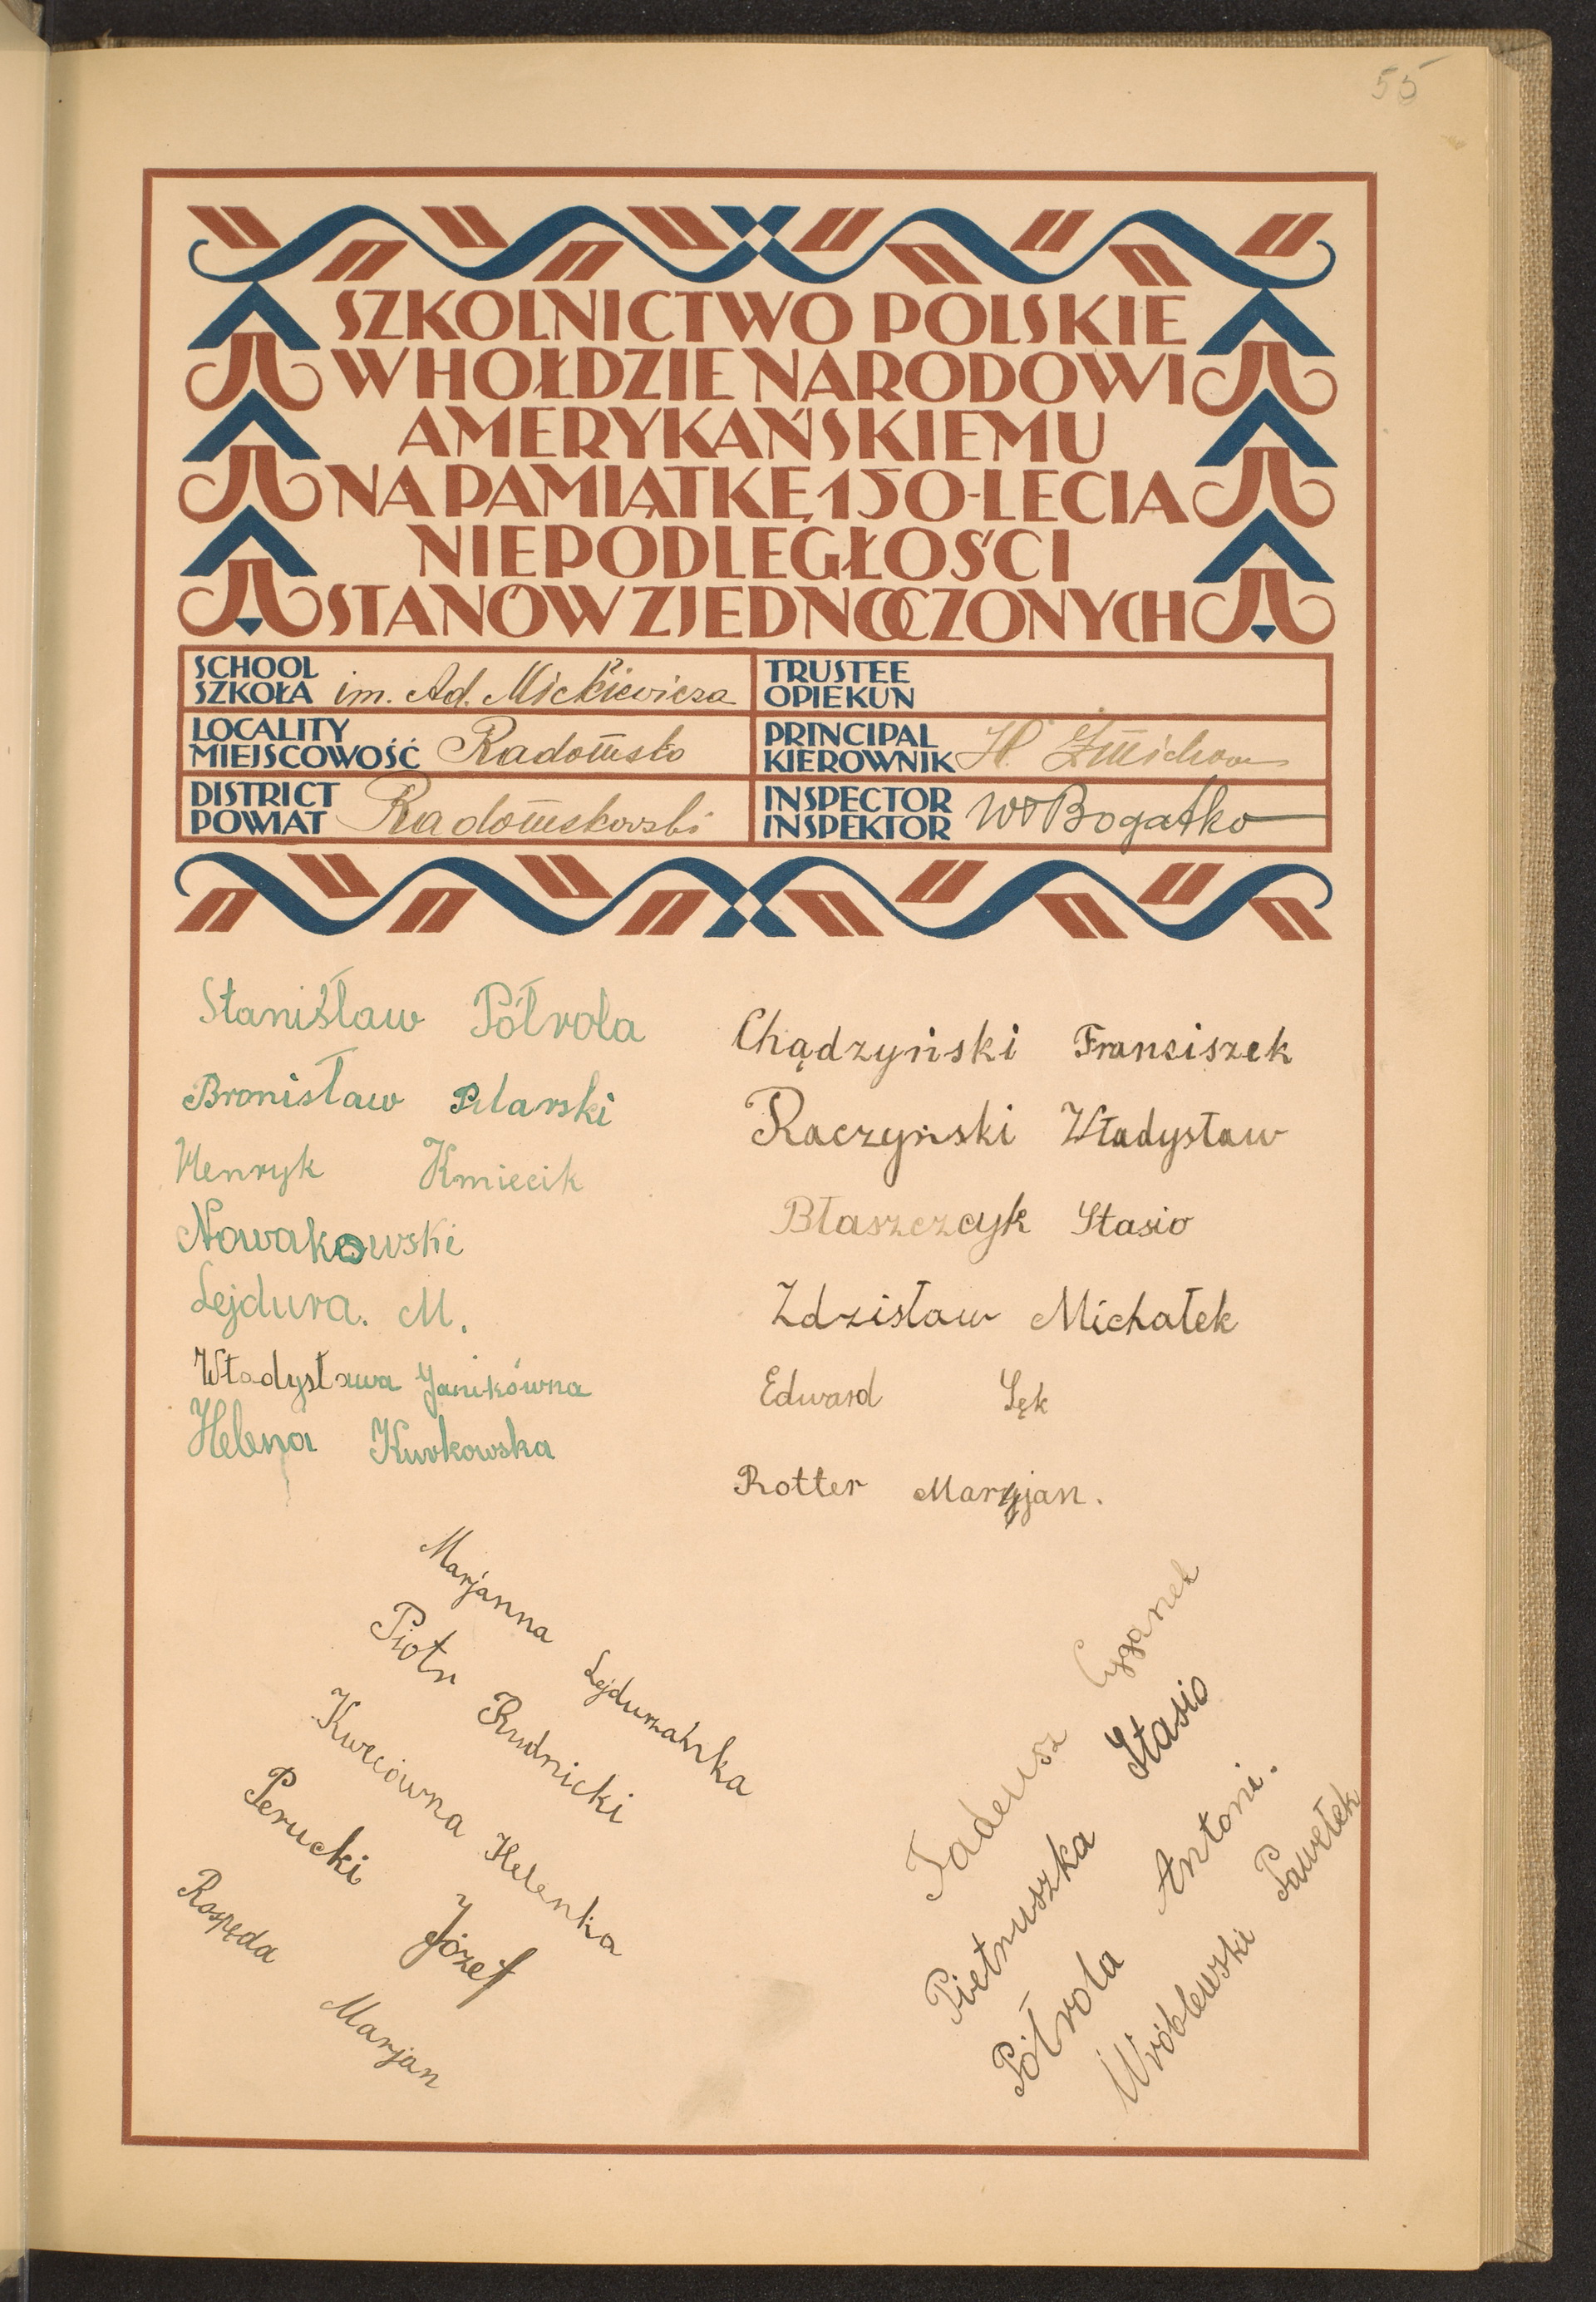 55
SZKOLNICTWO POLSKIE
W HOŁDZIE NARODOWI
AMERYKAŃSKIEMU
NA PAMIĄTKĘ 150-LECIA
NIEPODLEGŁOŚCI
STANÓW ZJEDNOCZONYCH
SCHOOL
SZKOŁA im. Ad. Mickiewicza
TRUSTEE
OPIEKUN
LOCALITY
MIEJSCOWOŚĆ Radomsko
PRINCIPAL
KIEROWNIK H.
DISTRICT
POWIAT Radomskowski
INSPECTOR
INSPEKTOR Wł Bogatko
Stanisław Półrola
Bronisław
Henryk Kmiecik
Nowakowski
Lejdura. M.
Władysława Janikówna
Helena Kurkowska
Chądzyński Franciszek
Raczyński Władysław
Błaszczcyk Stasio
Zdzisław Michałek
Edward Lęk
Rotter Maryjan.
Marjanna Lejdurzańska
Piotr Rudnicki
Kwecówna Helenka
Perucki Józef
Rospęda Marjan
Tadeusz Cyganek
Pietruszka Stasio
Półrola Antoni.
Wróblewski Pawełek